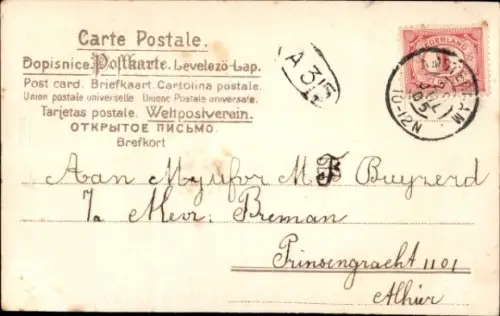 Carte Postale.
Dopisnice. Postkarte. Levelező-Lap.
Post card. Briefkaart. Cartolina postale.
Union postale universelle. Unione Postale universale.
Tarjetas postale. Weltpostverein.
ОТКРЫТОЕ ПИСЬМО.
Brefkort
A 315
NEDERLAND
AMSTERDAM
JUL
05
10-12N
Aan Mejufor M B Buyzerd
7a Mevr: Breman
Prinsengracht 1101
Alhier